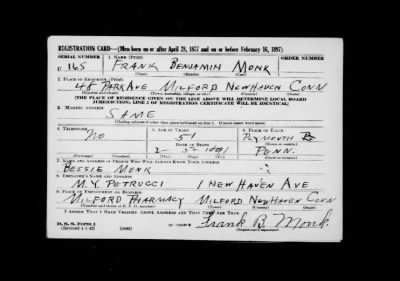 REGISTRATION CARD—(Men born on or after April 28, 1877 and on or before February 16, 1897)
SERIAL NUMBER 1. NAME (Print) ORDER NUMBER
U 165 FRANK BENJAMIN MONK
(First) (Middle) (Last)
2. PLACE OF RESIDENCE (Print)
48 PARK AVE MILFORD NEW HAVEN CONN
(Number and street) (Town, township, village, or city) (County) (State)
[THE PLACE OF RESIDENCE GIVEN ON THE LINE ABOVE WILL DETERMINE LOCAL BOARD
JURISDICTION; LINE 2 OF REGISTRATION CERTIFICATE WILL BE IDENTICAL]
3. MAILING ADDRESS
SAME
4. TELEPHONE 5. AGE IN YEARS 6. PLACE OF BIRTH
NO 51 PLYMOUTH
DATE OF BIRTH
2- PENN.
(Exchange) (Number) (Mo.) (Day) (Yr.) (State or country)
7. NAME AND ADDRESS OF PERSON WHO WILL ALWAYS KNOW YOUR ADDRESS
BESSIE MONK
8. EMPLOYER'S NAME AND ADDRESS
M. Y. PETRUCCI 1 NEW HAVEN AVE
9. PLACE OF EMPLOYMENT OR BUSINESS
MILFORD PHARMACY MILFORD NEW HAVEN CONN
(Number and street or R. F. D. number) (Town) (County) (State)
I AFFIRM THAT I HAVE VERIFIED ABOVE ANSWERS AND THAT THEY ARE TRUE.
D. S. S. Form 1
(Revised 4-1-42) (over) Frank B. Monk